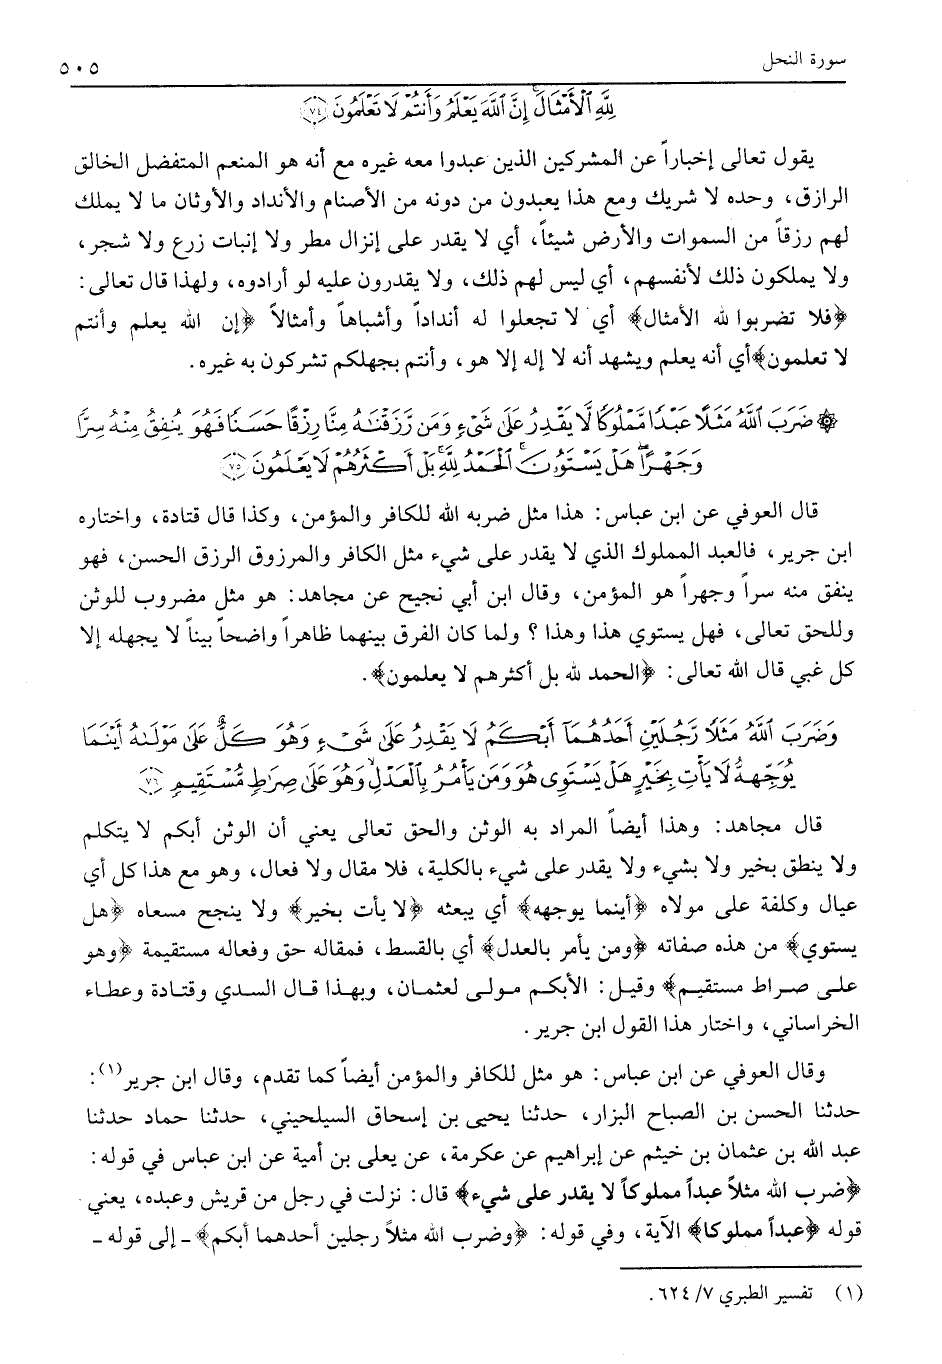 سورة النحل
٥٠٥
لِلَّهِ الْأَمْثَالَ إِنَّ اللَّهَ يَعْلَمُ وَأَنْتُمْ لَا تَعْلَمُونَ ﴿٧٤﴾
يقول تعالى إخباراً عن المشركين الذين عبدوا معه غيره مع أنه هو المنعم المتفضل الخالق
الرازق، وحده لا شريك ومع هذا يعبدون من دونه من الأصنام والأنداد والأوثان ما لا يملك
لهم رزقاً من السموات والأرض شيئاً، أي لا يقدر على إنزال مطر ولا إنبات زرع ولا شجر،
ولا يملكون ذلك لأنفسهم، أي ليس لهم ذلك، ولا يقدرون عليه لو أرادوه، ولهذا قال تعالى:
﴿فلا تضربوا لله الأمثال﴾ أي لا تجعلوا له أنداداً وأشباهاً وأمثالاً ﴿إن الله يعلم وأنتم
لا تعلمون﴾أي أنه يعلم ويشهد أنه لا إله إلا هو، وأنتم بجهلكم تشركون به غيره.
۞ ضَرَبَ اللَّهُ مَثَلًا عَبْدًا مَّمْلُوكًا لَّا يَقْدِرُ عَلَىٰ شَيْءٍ وَمَن رَّزَقْنَاهُ مِنَّا رِزْقًا حَسَنًا فَهُوَ يُنفِقُ مِنْهُ سِرًّا
وَجَهْرًا هَلْ يَسْتَوُونَ الْحَمْدُ لِلَّهِ بَلْ أَكْثَرُهُمْ لَا يَعْلَمُونَ ﴿٧٥﴾
قال العوفي عن ابن عباس: هذا مثل ضربه الله للكافر والمؤمن، وكذا قال قتادة، واختاره
ابن جرير، فالعبد المملوك الذي لا يقدر على شيء مثل الكافر والمرزوق الرزق الحسن، فهو
ينفق منه سراً وجهراً هو المؤمن، وقال ابن أبي نجيح عن مجاهد: هو مثل مضروب للوثن
وللحق تعالى، فهل يستوي هذا وهذا؟ ولما كان الفرق بينهما ظاهراً واضحاً بيناً لا يجهله إلا
كل غبي قال الله تعالى: ﴿الحمد لله بل أكثرهم لا يعلمون﴾.
وَضَرَبَ اللَّهُ مَثَلًا رَّجُلَيْنِ أَحَدُهُمَا أَبْكَمُ لَا يَقْدِرُ عَلَىٰ شَيْءٍ وَهُوَ كَلٌّ عَلَىٰ مَوْلَاهُ أَيْنَمَا
يُوَجِّههُّ لَا يَأْتِ بِخَيْرٍ هَلْ يَسْتَوِي هُوَ وَمَن يَأْمُرُ بِالْعَدْلِ وَهُوَ عَلَىٰ صِرَاطٍ مُّسْتَقِيمٍ ﴿٧٦﴾
قال مجاهد: وهذا أيضاً المراد به الوثن والحق تعالى يعني أن الوثن أبكم لا يتكلم
ولا ينطق بخير ولا بشيء ولا يقدر على شيء بالكلية، فلا مقال ولا فعال، وهو مع هذا كل أي
عيال وكلفة على مولاه ﴿أينما يوجهه﴾ أي يبعثه ﴿لا يأت بخير﴾ ولا ينجح مسعاه ﴿هل
يستوي﴾ من هذه صفاته ﴿ومن يأمر بالعدل﴾ أي بالقسط، فمقاله حق وفعاله مستقيمة ﴿وهو
على صراط مستقيم﴾ وقيل: الأبكم مولى لعثمان، وبهذا قال السدي وقتادة وعطاء
الخراساني، واختار هذا القول ابن جرير.
وقال العوفي عن ابن عباس: هو مثل للكافر والمؤمن أيضاً كما تقدم، وقال ابن جرير(١):
حدثنا الحسن بن الصباح البزار، حدثنا يحيى بن إسحاق السيلحيني، حدثنا حماد حدثنا
عبد الله بن عثمان بن خيثم عن إبراهيم عن عكرمة، عن يعلى بن أمية عن ابن عباس في قوله:
﴿ضرب الله مثلاً عبداً مملوكاً لا يقدر على شيء﴾ قال: نزلت في رجل من قريش وعبده، يعني
قوله ﴿عبداً مملوكا﴾ الآية، وفي قوله: ﴿وضرب الله مثلاً رجلين أحدهما أبكم﴾ ـ إلى قوله ـ
(١) تفسير الطبري ٧/ ٦٢٤.